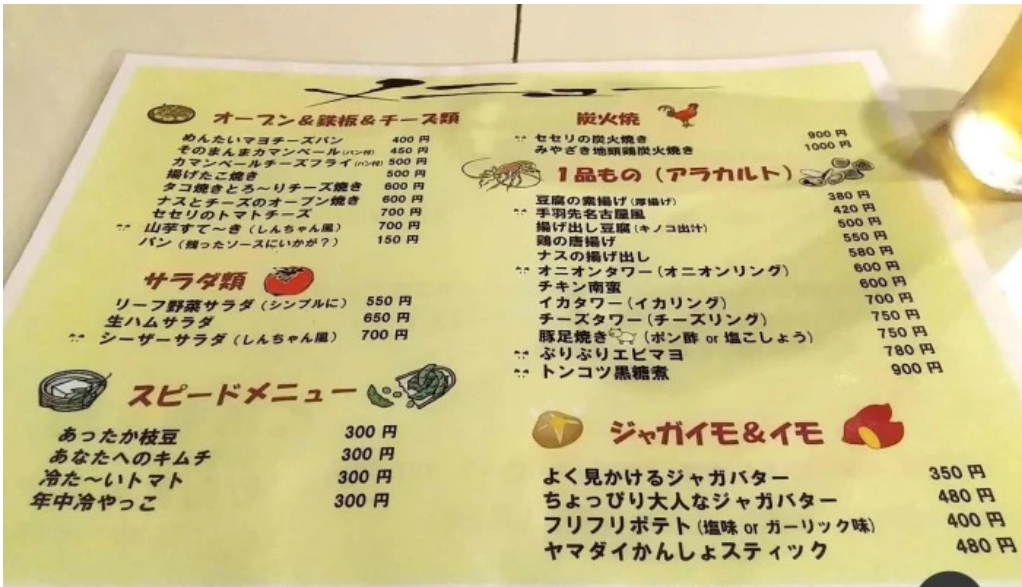 メニュー
オーブン&鉄板&チーズ類
めんたいマヨチーズパン 400円
そのまんまカマンベール(パン付) 450円
カマンベールチーズフライ(パン付) 500円
揚げたこ焼き 500円
タコ焼きとろ〜りチーズ焼き 600円
ナスとチーズのオーブン焼き 600円
セセリのトマトチーズ 700円
山芋すて〜き(しんちゃん風) 700円
パン(残ったソースにいかが?) 150円
サラダ類
リーフ野菜サラダ(シンプルに) 550円
生ハムサラダ 650円
シーザーサラダ(しんちゃん風) 700円
スピードメニュー
あったか枝豆 300円
あなたへのキムチ 300円
冷た〜いトマト 300円
年中冷やっこ 300円
炭火焼
セセリの炭火焼き 900円
みやざき地頭鶏炭火焼き 1000円
1品もの(アラカルト)
豆腐の素揚げ(厚揚げ) 380円
手羽先名古屋風 420円
揚げ出し豆腐(キノコ出汁) 500円
鶏の唐揚げ 550円
ナスの揚げ出し 580円
オニオンタワー(オニオンリング) 600円
チキン南蛮 600円
イカタワー(イカリング) 700円
チーズタワー(チーズリング) 750円
豚足焼き(ポン酢 or 塩こしょう) 750円
ぷりぷりエビマヨ 780円
トンコツ黒糖煮 900円
ジャガイモ&イモ
よく見かけるジャガバター 350円
ちょっぴり大人なジャガバター 480円
フリフリポテト(塩味 or ガーリック味) 400円
ヤマダイかんしょスティック 480円